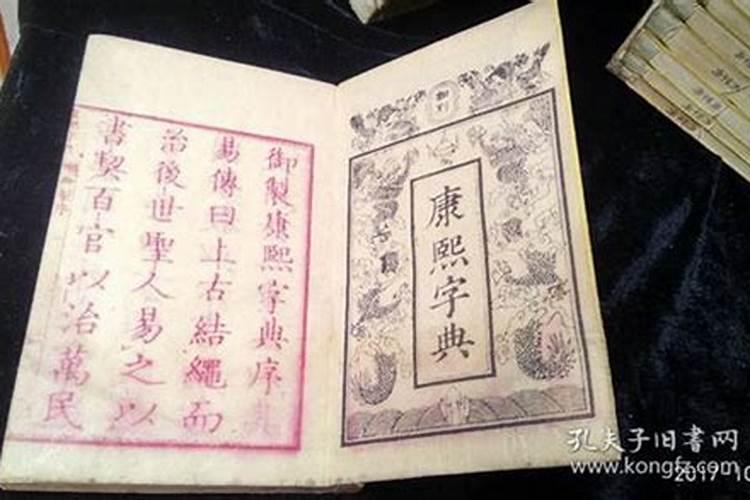 康熙字典
御製康熙字典序
易傳曰上古結繩而
治後世聖人易之以
書契百官以治萬民
孔夫子旧书网
www.kongfz.com
2017